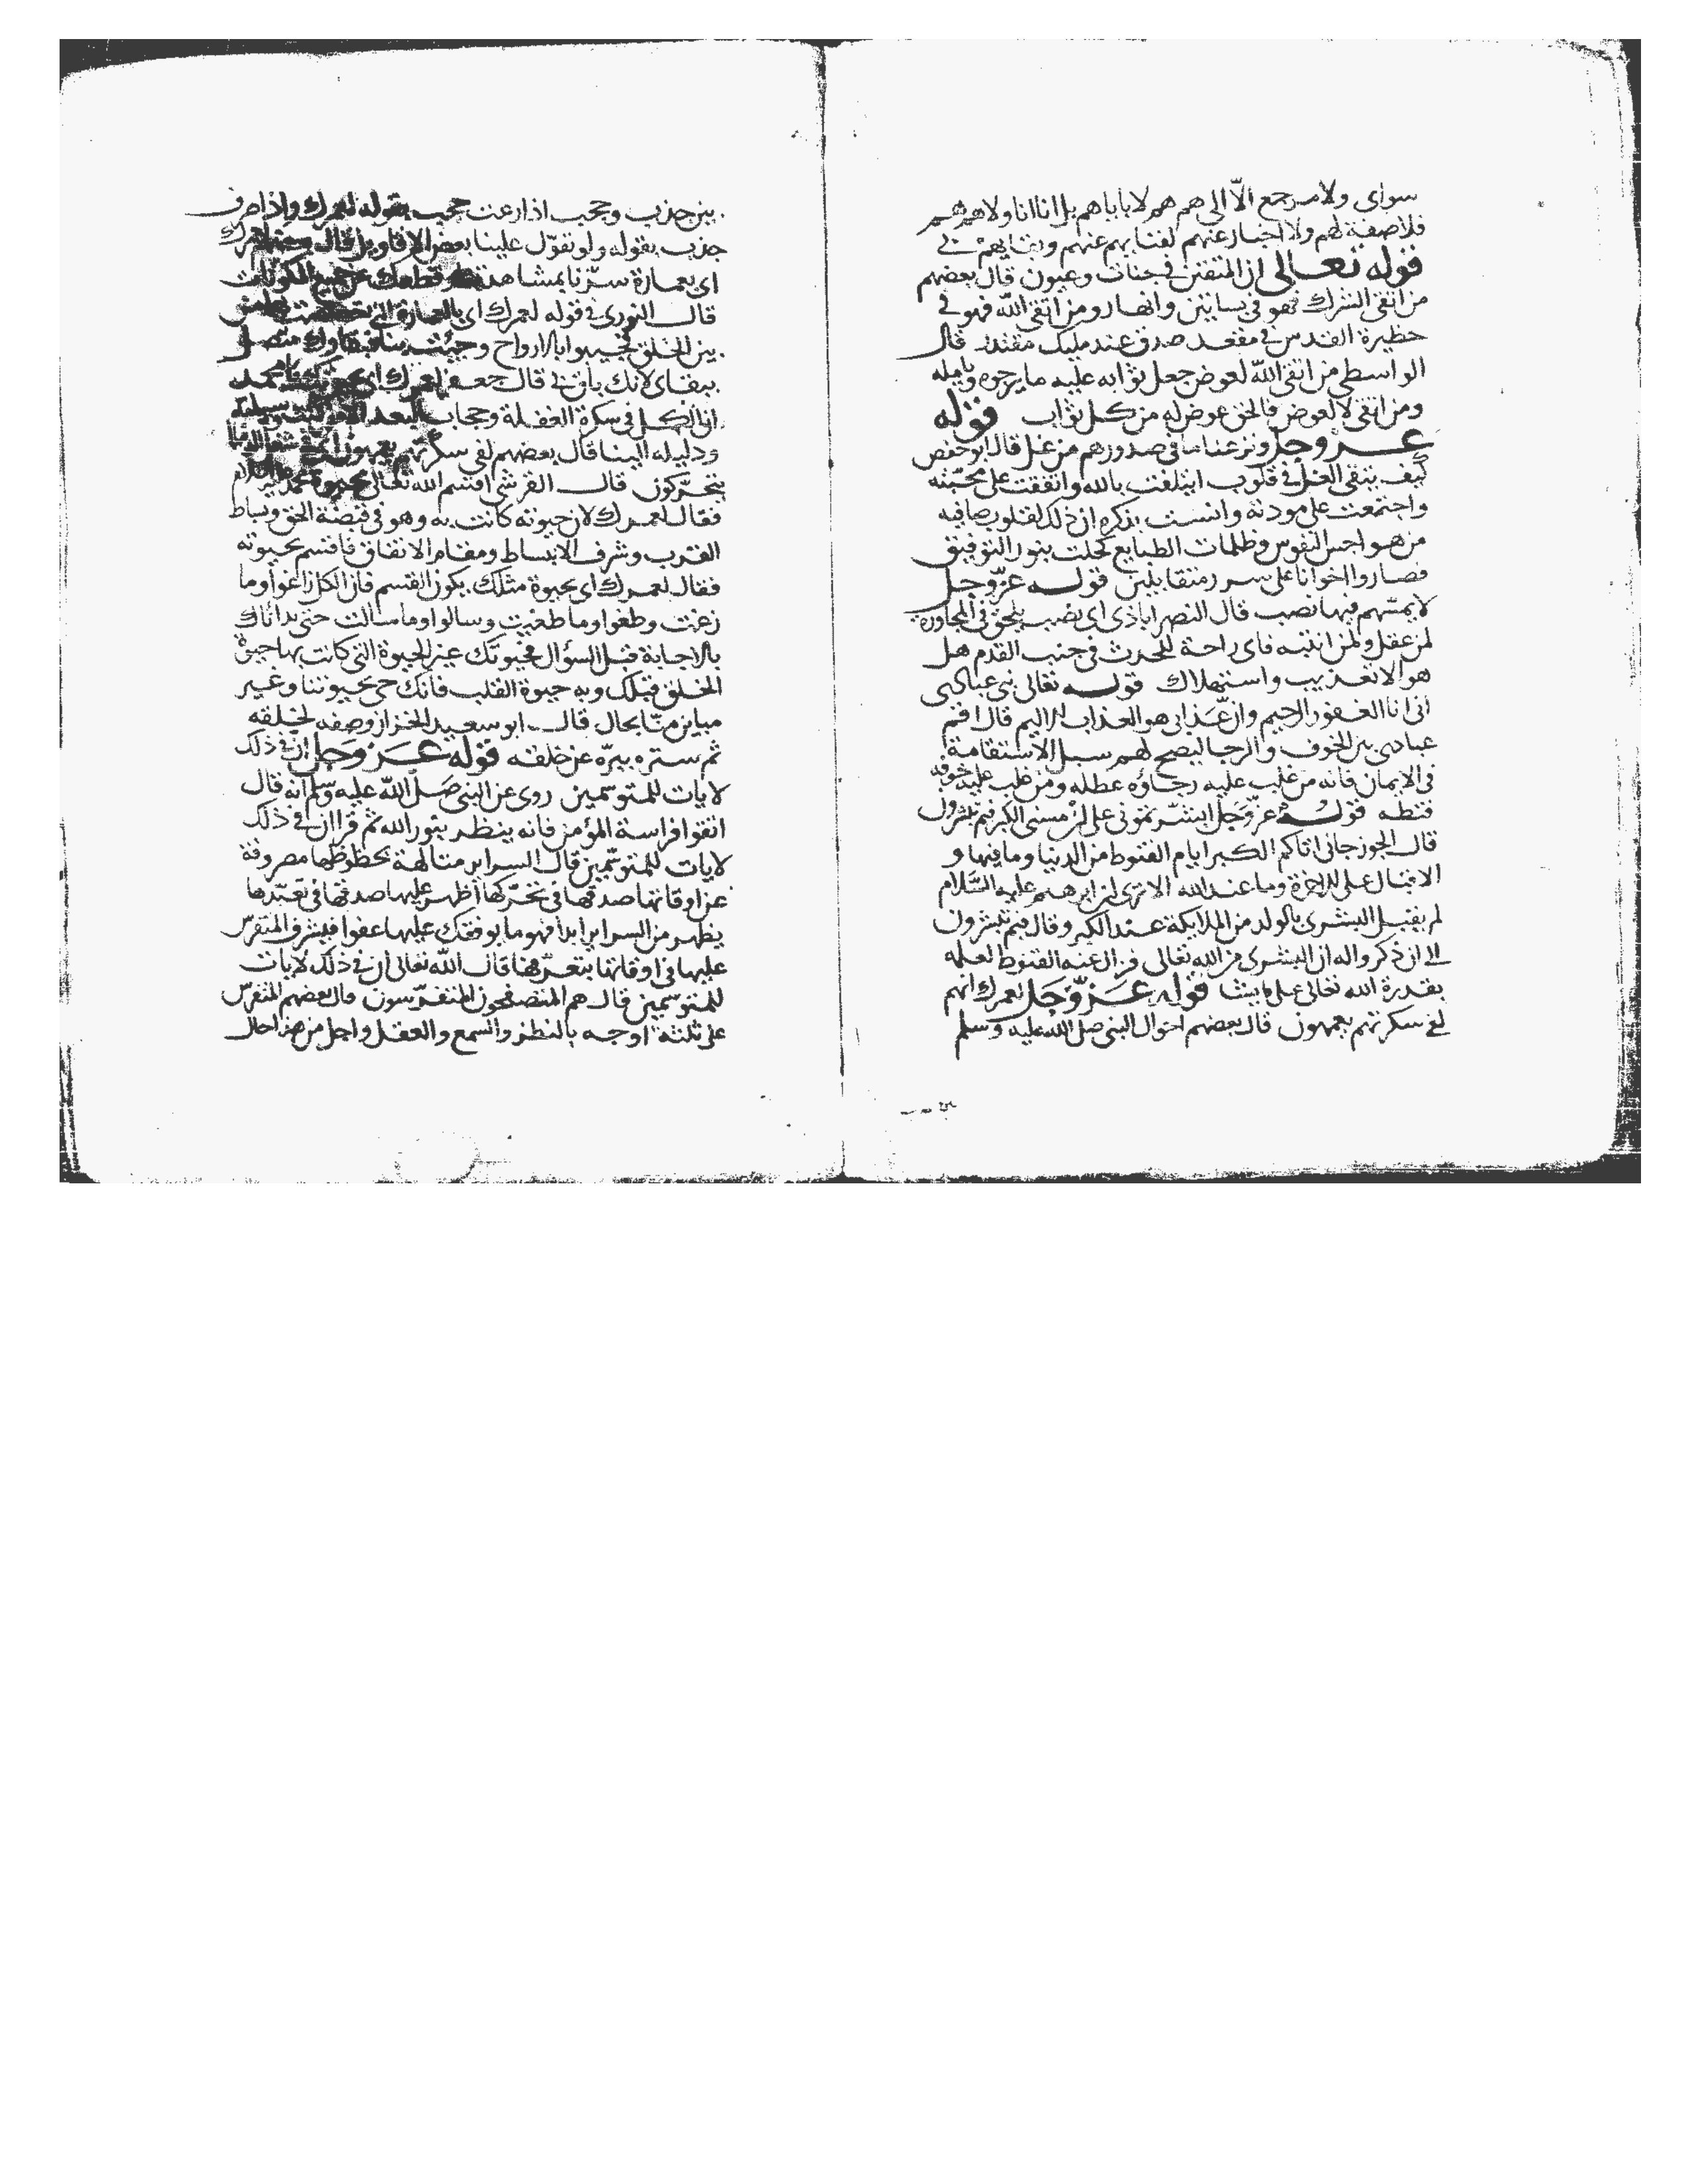 سواى ولا مرجع الّا الى هم هم لا باباهم بل انا انا ولا هم هم
فلا صفة لهم ولا اخبار عنهم لفنايهم عنهم وبقايهم بى
قوله تعالى ان المتقين فى جنات وعيون قال بعضهم
من اتقى الشرك فهو فى بساتين وانهار ومن اتقى الله فهو فى
حظيرة القدس فى مقعد صدق عند مليك مقتدر قال
الواسطى من اتقى الله لعوض جعل ثوابه عليه ما يرجوه ويامله
ومن اتقى لا لعوض فالحق عوض له من كل ثواب قوله
عز وجل ونزعنا ما فى صدورهم من غل قال ابو حفص
كيف يبقى الغل فى قلوب ايتلفت بالله واتفقت على محبّته
واجتمعت على مودته وانست بذكره ان ذلك لقلوب صافيه
من هواجس النفوس وظلمات الطبايع كحلت بنور التوفيق
فصاروا اخوانا على سرر متقابلين قوله عزّ وجل
لا يمسّهم فيها نصب قال النصراباذى اى نصب يلحق فى المجاورة
لمن عقل ولمن انتبه فاى راحة للحدث فى جنب القدم هل
هو الا تعذيب واستهلاك قوله تعالى نبى عبادى
انى انا الغفور الرحيم وان عذابى هو العذاب الاليم قال اقم
عبادى بين الخوف والرجا ليصح لهم سبل الاستقامة
فى الايمان فانه من غلب عليه رجاؤه عطله ومن غلب عليه خوفه
قنطه قوله عزّ وجَل ابشّرتمونى على ان مسنى الكبر فبم تبشرون
قال الجوزجانى اتاكم الكبر ايام القنوط من الدنيا وما فيها و
الاقبال على الاخرة وما عند الله الا ترى ان ابرهيم عليه السّلام
لم يقبل البشرى بالولد من الملايكة عند الكبر وقال فبم تبشرون
الى ان ذكروا له ان البشرى من الله تعالى فزال عنه القنوط لعلمه
بقدرة الله تعالى على ما يشا قوله عَزّ وَجَل لعمرك انهم
لفى سكرتهم يعمهون قال بعضهم احوال النبى صلى الله عليه وسلم
بين جذب وحجب اذا رعت حجب بقوله لعمرك واذا صرف
جذب بقوله ولو تقوّل علينا بعض الاقاويل قال بعضهم لعمرك
اى بعمارة سرّنا بمشاهدتنا وقطعك عن جميع المكونات
قال النورى فى قوله لعمرك اى بالعمارة التى خصصت بها من
بين الخلق فحيوا بالارواح وحييت بنا فبقاوك متصل
ببقاى لانك باق بى قال جعفر لعمرك اى بحيوتك يا محمد
ان الكل فى سكرة الغفلة وحجاب البعد الا من كنت وسيلته
ودليله الينا قال بعضهم لفى سكرتهم يعمهون
يتحرّكون قال القرشى اقسم الله تعالى بحيوة محمد عليه السلام
فقال لعمرك لان حيوته كانت به وهو فى قبضة الحق وبساط
القرب وشرف الانبساط ومقام الاتفاق فاقسم بحيوته
فقال لعمرك اى بحيوة مثلك يكون القسم فان الكل زاغوا وما
زغت وطغوا وما طغيت وسالوا وما سالت حتى بداناك
بالاجابة قبل السؤال فحيوتك عين الحيوة التى كانت بها حيوة
الخلق قبلك وبه حيوة القلب فانك حى بحيوتنا وغير
مباين منّا بحال قال ابو سعيد الخراز وصفه لخلقه
ثم ستره ببرّه عن خلقه قوله عَز وَجَل ان فى ذلك
لايات للمتوسّمين روى عن النبى صَلى الله عليه وسلم انه قال
اتقوا فراسة المؤمن فانه ينظر بنور الله ثم قرا ان فى ذلك
لايات للمتوسّمين قال السراير متالهة بحظوظها مصروفة
عن اوقاتها صدقها فى تحرّكها اظهر عليها صدقها فى تعبّدها
يظهر من السراير ابدا فهو ما يوفقك عليها عفوا فيشرف المتفرّس
عليها فى اوقاتها بتعرّفها قال الله تعالى ان فى ذلك لايات
للمتوسّمين قال هم المتصفحون المتفرّسون قال بعضهم المتفرّس
على ثلثة اوجه بالنظر والسمع والعقل واجل من هذا حال